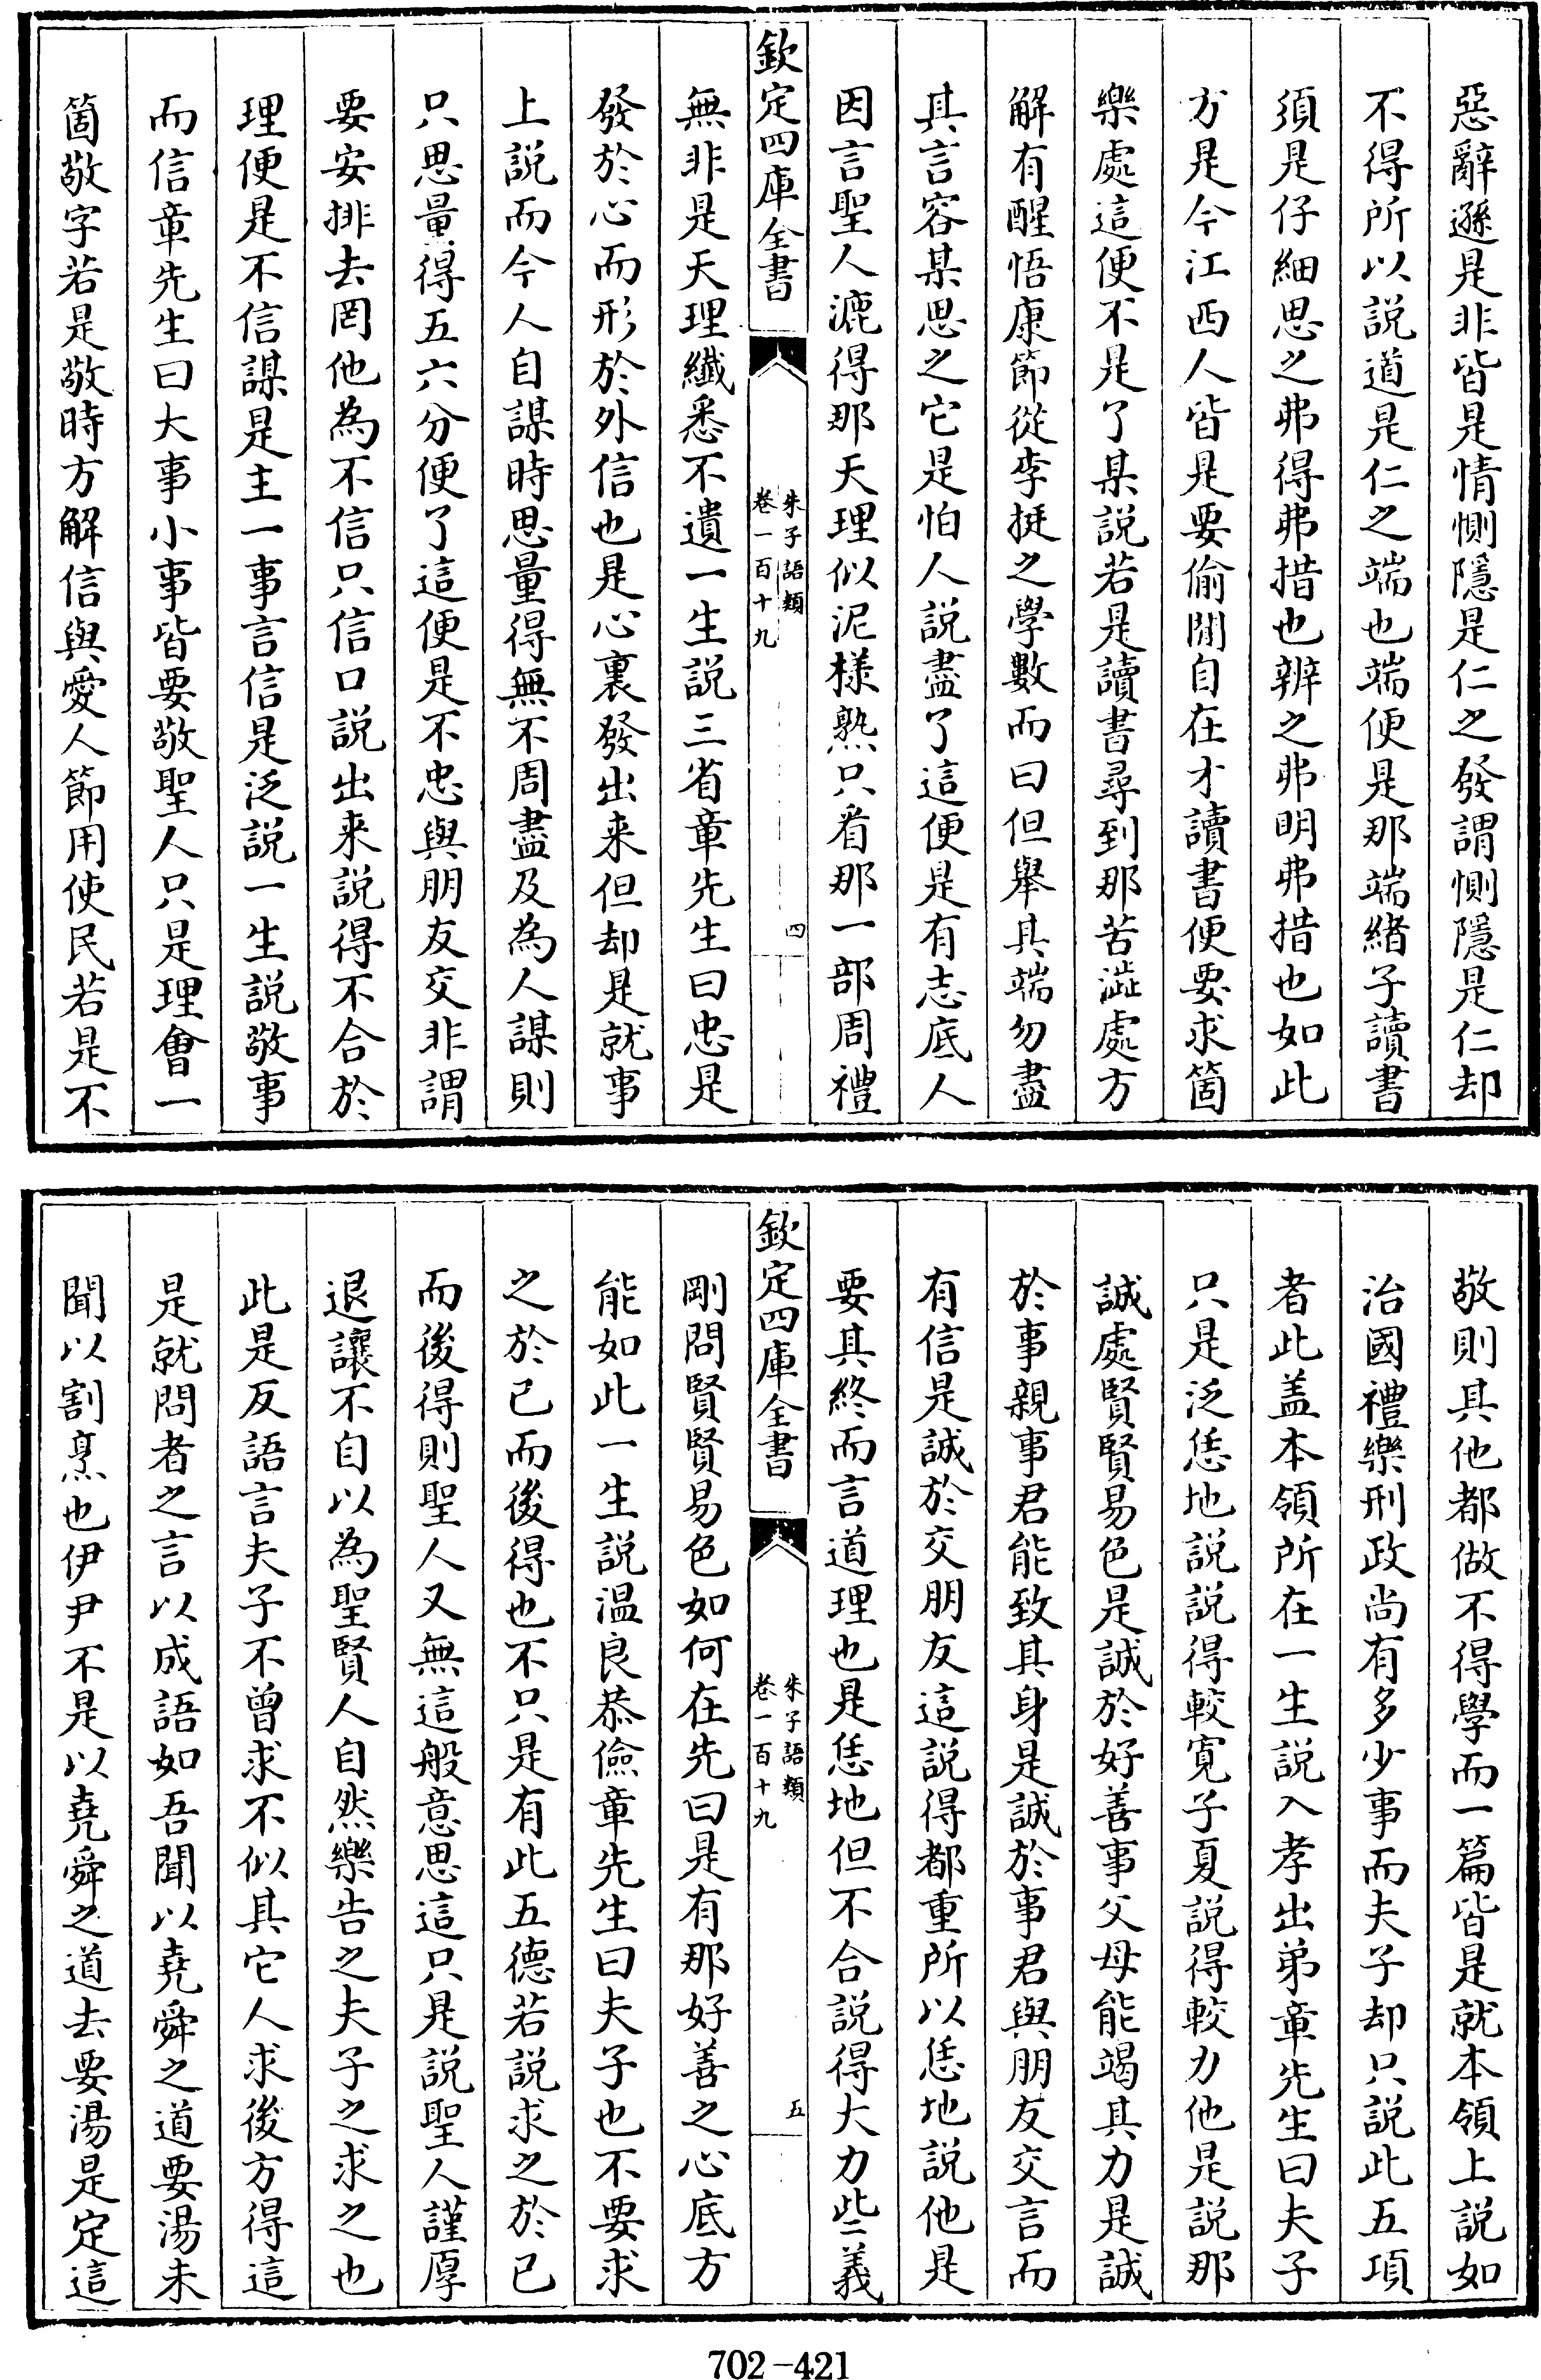 惡辭遜是非皆是情惻隱是仁之發謂惻隱是仁却
不得所以説道是仁之端也端便是那端緒子讀書
須是仔細思之弗得弗措也辨之弗明弗措也如此
方是今江西人皆是要偷閒自在才讀書便要求箇
樂處這便不是了某説若是讀書尋到那苦澁處方
解有醒悟康節從李挺之學數而曰但舉其端勿盡
其言容某思之它是怕人説盡了這便是有志底人
因言聖人漉得那天理似泥様熟只看那一部周禮
欽定四庫全書
朱子語類
卷一百十九
四
無非是天理纖悉不遺一生説三省章先生曰忠是
發於心而形於外信也是心裏發出来但却是就事
上説而今人自謀時思量得無不周盡及為人謀則
只思量得五六分便了這便是不忠與朋友交非謂
要安排去罔他為不信只信口説出来説得不合於
理便是不信謀是主一事言信是泛説一生説敬事
而信章先生曰大事小事皆要敬聖人只是理會一
箇敬字若是敬時方解信與愛人節用使民若是不
敬則其他都做不得學而一篇皆是就本領上説如
治國禮樂刑政尚有多少事而夫子却只説此五項
者此盖本領所在一生説入孝出弟章先生曰夫子
只是泛恁地説説得較寛子夏説得較力他是説那
誠處賢賢易色是誠於好善事父母能竭其力是誠
於事親事君能致其身是誠於事君與朋友交言而
有信是誠於交朋友這説得都重所以恁地説他是
要其終而言道理也是恁地但不合説得大力些義
欽定四庫全書
朱子語類
卷一百十九
五
剛問賢賢易色如何在先曰是有那好善之心底方
能如此一生説温良恭儉章先生曰夫子也不要求
之於己而後得也不只是有此五德若説求之於己
而後得則聖人又無這般意思這只是説聖人謹厚
退讓不自以為聖賢人自然樂告之夫子之求之也
此是反語言夫子不曾求不似其它人求後方得這
是就問者之言以成語如吾聞以堯舜之道要湯未
聞以割烹也伊尹不是以堯舜之道去要湯是定這
702-421